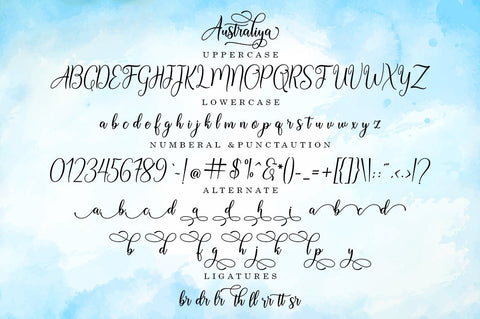 Australiya
UPPERCASE
ABCDEFGHIJKLMNOPQRSTUVWXYZ
LOWERCASE
a b c d e f g h i j k l m n o p q r s t u v w x y z
NUMBERAL & PUNCTAUTION
0123456789~-!@#$%^&*()-_=+[{]}\|:;'",<.>/?
ALTERNATE
a b c d q d h i a b c d
b d f g h j k l p y
LIGATURES
br dr lr th ll rr tt sr